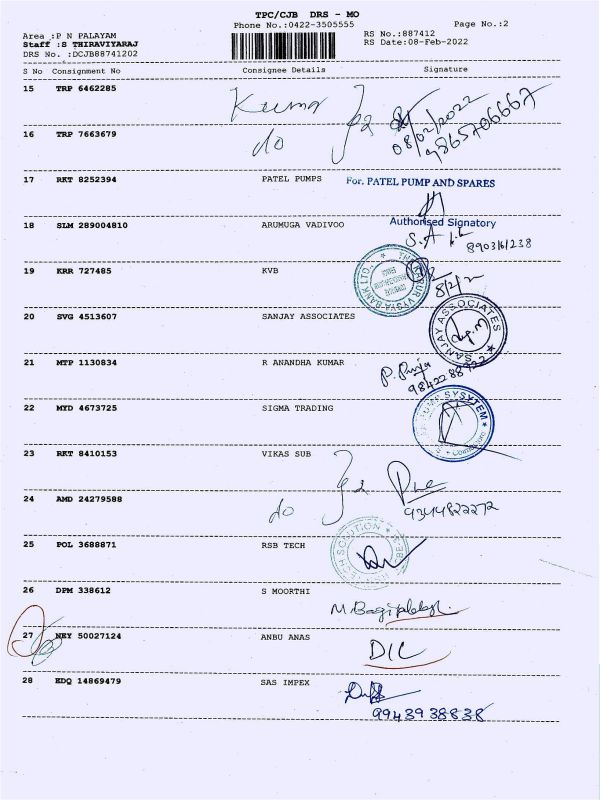 TPC/CJB DRS - MO
Phone No.:0422-3505555 Page No.:2
Area :P N PALAYAM RS No.:887412
Staff :S THIRAVIYARAJ RS Date:08-Feb-2022
DRS No. :DCJB88741202
S No Consignment No Consignee Details Signature
15 TRP 6462285
Kuma
08/02/2022
9865706667
16 TRP 7663679 do
17 RKT 8252394 PATEL PUMPS For. PATEL PUMP AND SPARES
Authorised Signatory
18 SLM 289004810 ARUMUGA VADIVOO
8903161238
19 KRR 727485 KVB
THE KARUR VYSYA BANK LTD.
8/2/2
20 SVG 4513607 SANJAY ASSOCIATES
SANJAY ASSOCIATES
21 MTP 1130834 R ANANDHA KUMAR
P. Puja
22 MYD 4673725 SIGMA TRADING
SYSYTEM
23 RKT 8410153 VIKAS SUB
9344822272
24 AMD 24279588 do
25 POL 3688871 RSB TECH
26 DPM 338612 S MOORTHI
27 NEY 50027124 ANBU ANAS
DIC
28 EDQ 14869479 SAS IMPEX
9943938838